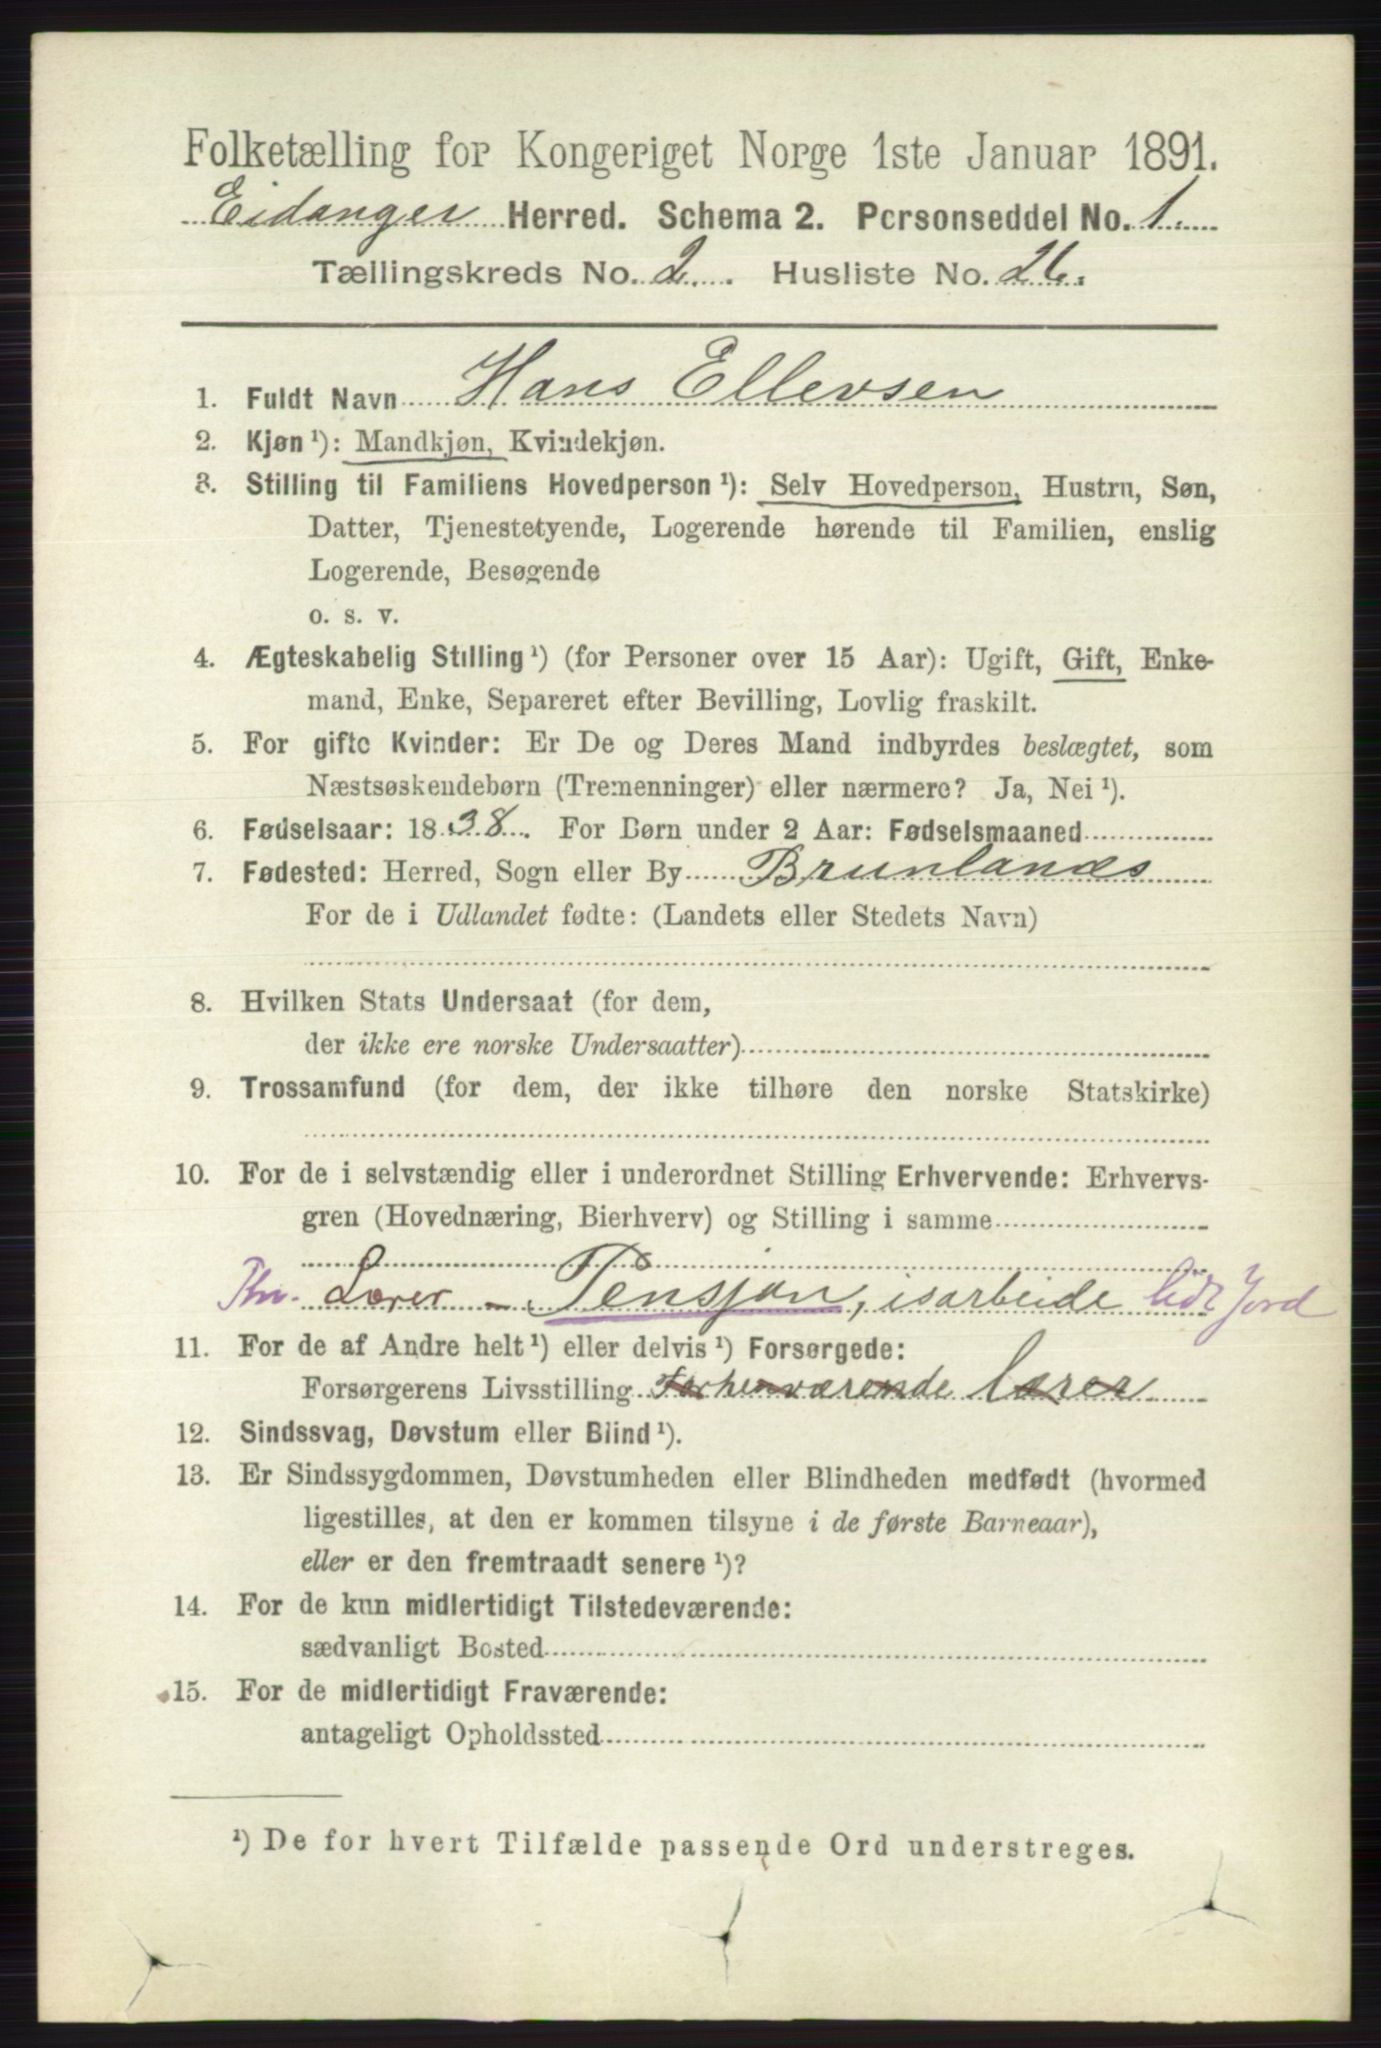 Folketælling for Kongeriget Norge 1ste Januar 1891.
Eidanger Herred. Schema 2. Personseddel No. 1.
Tællingskreds No. 2. Husliste No. 26.
1. Fuldt Navn Hans Ellevsen
2. Kjøn ¹): Mandkjøn, Kvindekjøn.
3. Stilling til Familiens Hovedperson ¹): Selv Hovedperson, Hustru, Søn,
Datter, Tjenestetyende, Logerende hørende til Familien, enslig
Logerende, Besøgende
o. s. v.
4. Ægteskabelig Stilling ¹) (for Personer over 15 Aar): Ugift, Gift, Enke-
mand, Enke, Separeret efter Bevilling, Lovlig fraskilt.
5. For gifte Kvinder: Er De og Deres Mand indbyrdes beslægtet, som
Næstsøskendebørn (Tremenninger) eller nærmere? Ja, Nei ¹).
6. Fødselsaar: 1838. For Børn under 2 Aar: Fødselsmaaned
7. Fødested: Herred, Sogn eller By Brunlanæs
For de i Udlandet fødte: (Landets eller Stedets Navn)
8. Hvilken Stats Undersaat (for dem,
der ikke ere norske Undersaatter)
9. Trossamfund (for dem, der ikke tilhøre den norske Statskirke)
10. For de i selvstændig eller i underordnet Stilling Erhvervende: Erhvervs-
gren (Hovednæring, Bierhverv) og Stilling i samme
Fhv. Lærer - Pensjon, isarbeide lidt Jord
11. For de af Andre helt ¹) eller delvis ¹) Forsørgede:
Forsørgerens Livsstilling Forhenværende lærer
12. Sindssvag, Døvstum eller Blind ¹).
13. Er Sindssygdommen, Døvstumheden eller Blindheden medfødt (hvormed
ligestilles, at den er kommen tilsyne i de første Barneaar),
eller er den fremtraadt senere ¹)?
14. For de kun midlertidigt Tilstedeværende:
sædvanligt Bosted
15. For de midlertidigt Fraværende:
antageligt Opholdssted
¹) De for hvert Tilfælde passende Ord understreges.